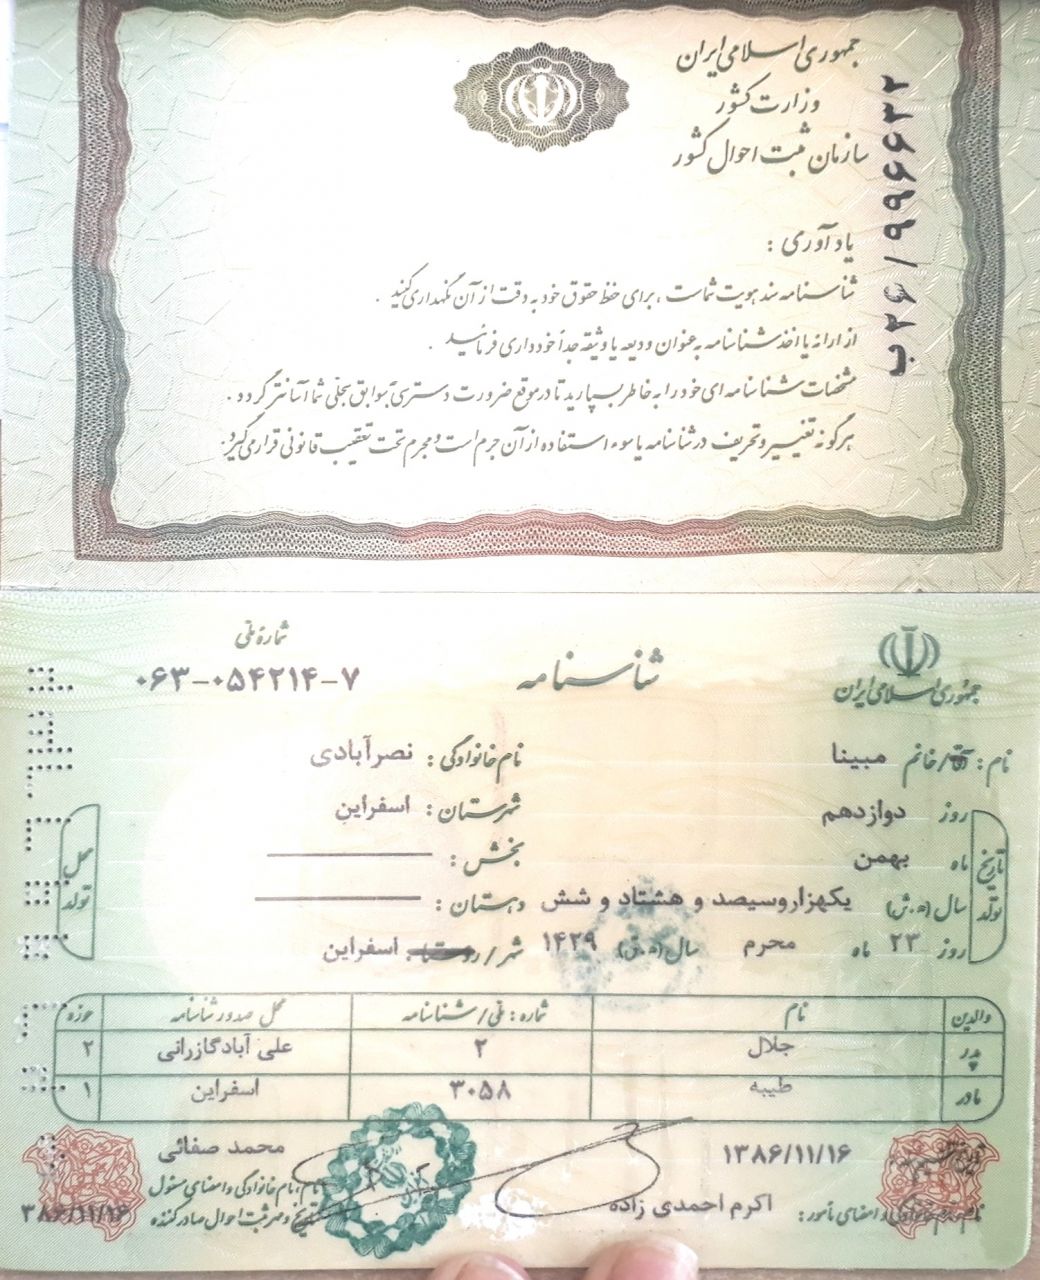 جمهوری اسلامی ایران
وزارت کشور
سازمان ثبت احوال کشور
ب۲۶/۹۹۶۶۳۲
یادآوری :
شناسنامه سند هویت شماست ، برای حفظ حقوق خود به دقت از آن نگهداری کنید .
از ارائه یا اخذ شناسنامه به عنوان ودیعه یا وثیقه جداً خودداری فرمائید .
مشخصات شناسنامه ای خود را به خاطر بسپارید تا در موقع ضرورت دسترسی به سوابق سجلی شما آسانتر گردد .
هرگونه تغییر و تحریف در شناسنامه یا سوء استفاده از آن جرم است و مجرم تحت تعقیب قانونی قرار می گیرد.
جمهوری اسلامی ایران
شناسنامه
شماره ملی
۰۶۳-۰۵۴۲۱۴-۷
نام : آقا/خانم مبینا نام خانوادگی : نصرآبادی
تاریخ تولد
روز دوازدهم شهرستان : اسفراین
ماه بهمن بخش :
سال (ه.ش) یکهزاروسیصد و هشتاد و شش دهستان :
روز ۲۳ ماه محرم سال (ه.ق) ۱۴۲۹ شهر/روستا : اسفراین
محل تولد
والدین نام شماره : ملی/شناسنامه محل صدور شناسنامه حوزه
پدر جلال ۲ علی آبادگازرانی ۲
مادر طیبه ۳۰۵۸ اسفراین ۱
۱۳۸۶/۱۱/۱۶ محمد صفائی
نام، نام خانوادگی و امضای مأمور : اکرم احمدی زاده
نام، نام خانوادگی و امضای مسئول
و مهر ثبت احوال صادرکننده
۳۸۶/۱۱/۱۶